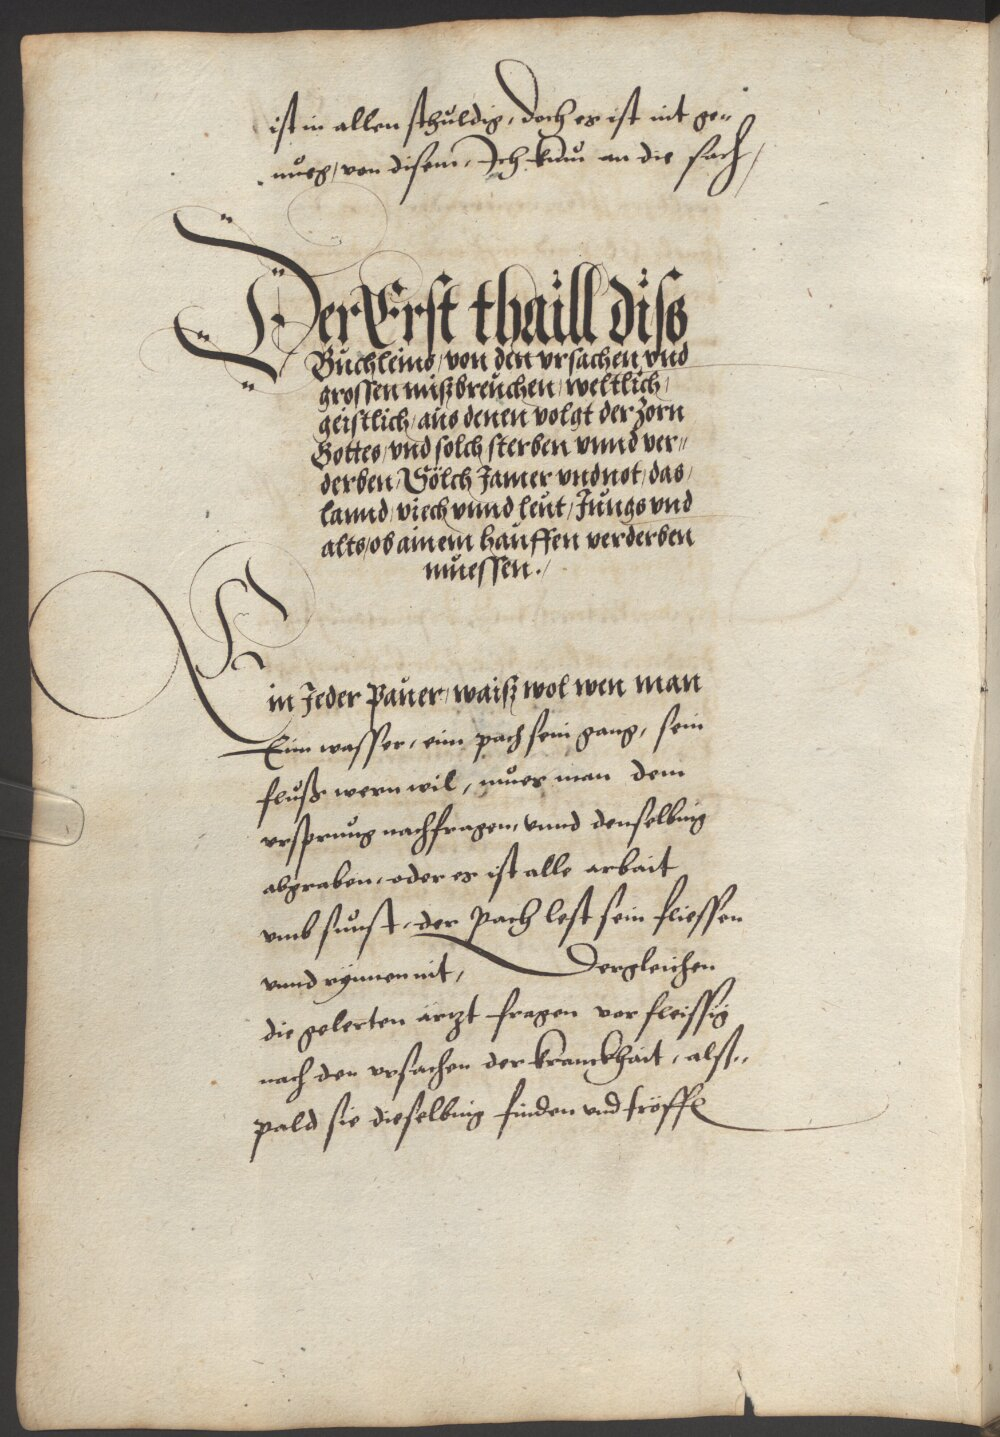 ist in allen schuldig, Doch es ist nit ge„
nueg, von disem, Ich kum an die sach,
Der Erst thaill diss
Buchleins, von den vrsachen, vnd
grossen mißbreuchen, weltlich,
geistlich, aus denen volgt der Zorn
Gottes, vnd solch sterben vnnd ver„
derben, Sölch Jamer vnd not, das,
lannd, viech vnnd leut, Jungs vnd
alts, ob ainem hauffen verderben
muessen.,
Ein Jeder Pauer, waisz wol wen man
Eim wasser, eim pach sein gang, sein
flusß wern wil, mues man dem
vrsprung nachfragen, vnnd denselbing
abgraben, oder es ist alle arbait
vmb sunst, der Pach lest sein fliessen
vnnd rynnen nit, Dergleichen
die gelerten ärtzt fragen vor fleissig
nach den vrsachen der kranckhait, alss„
pald sie dieselbing finden vnd